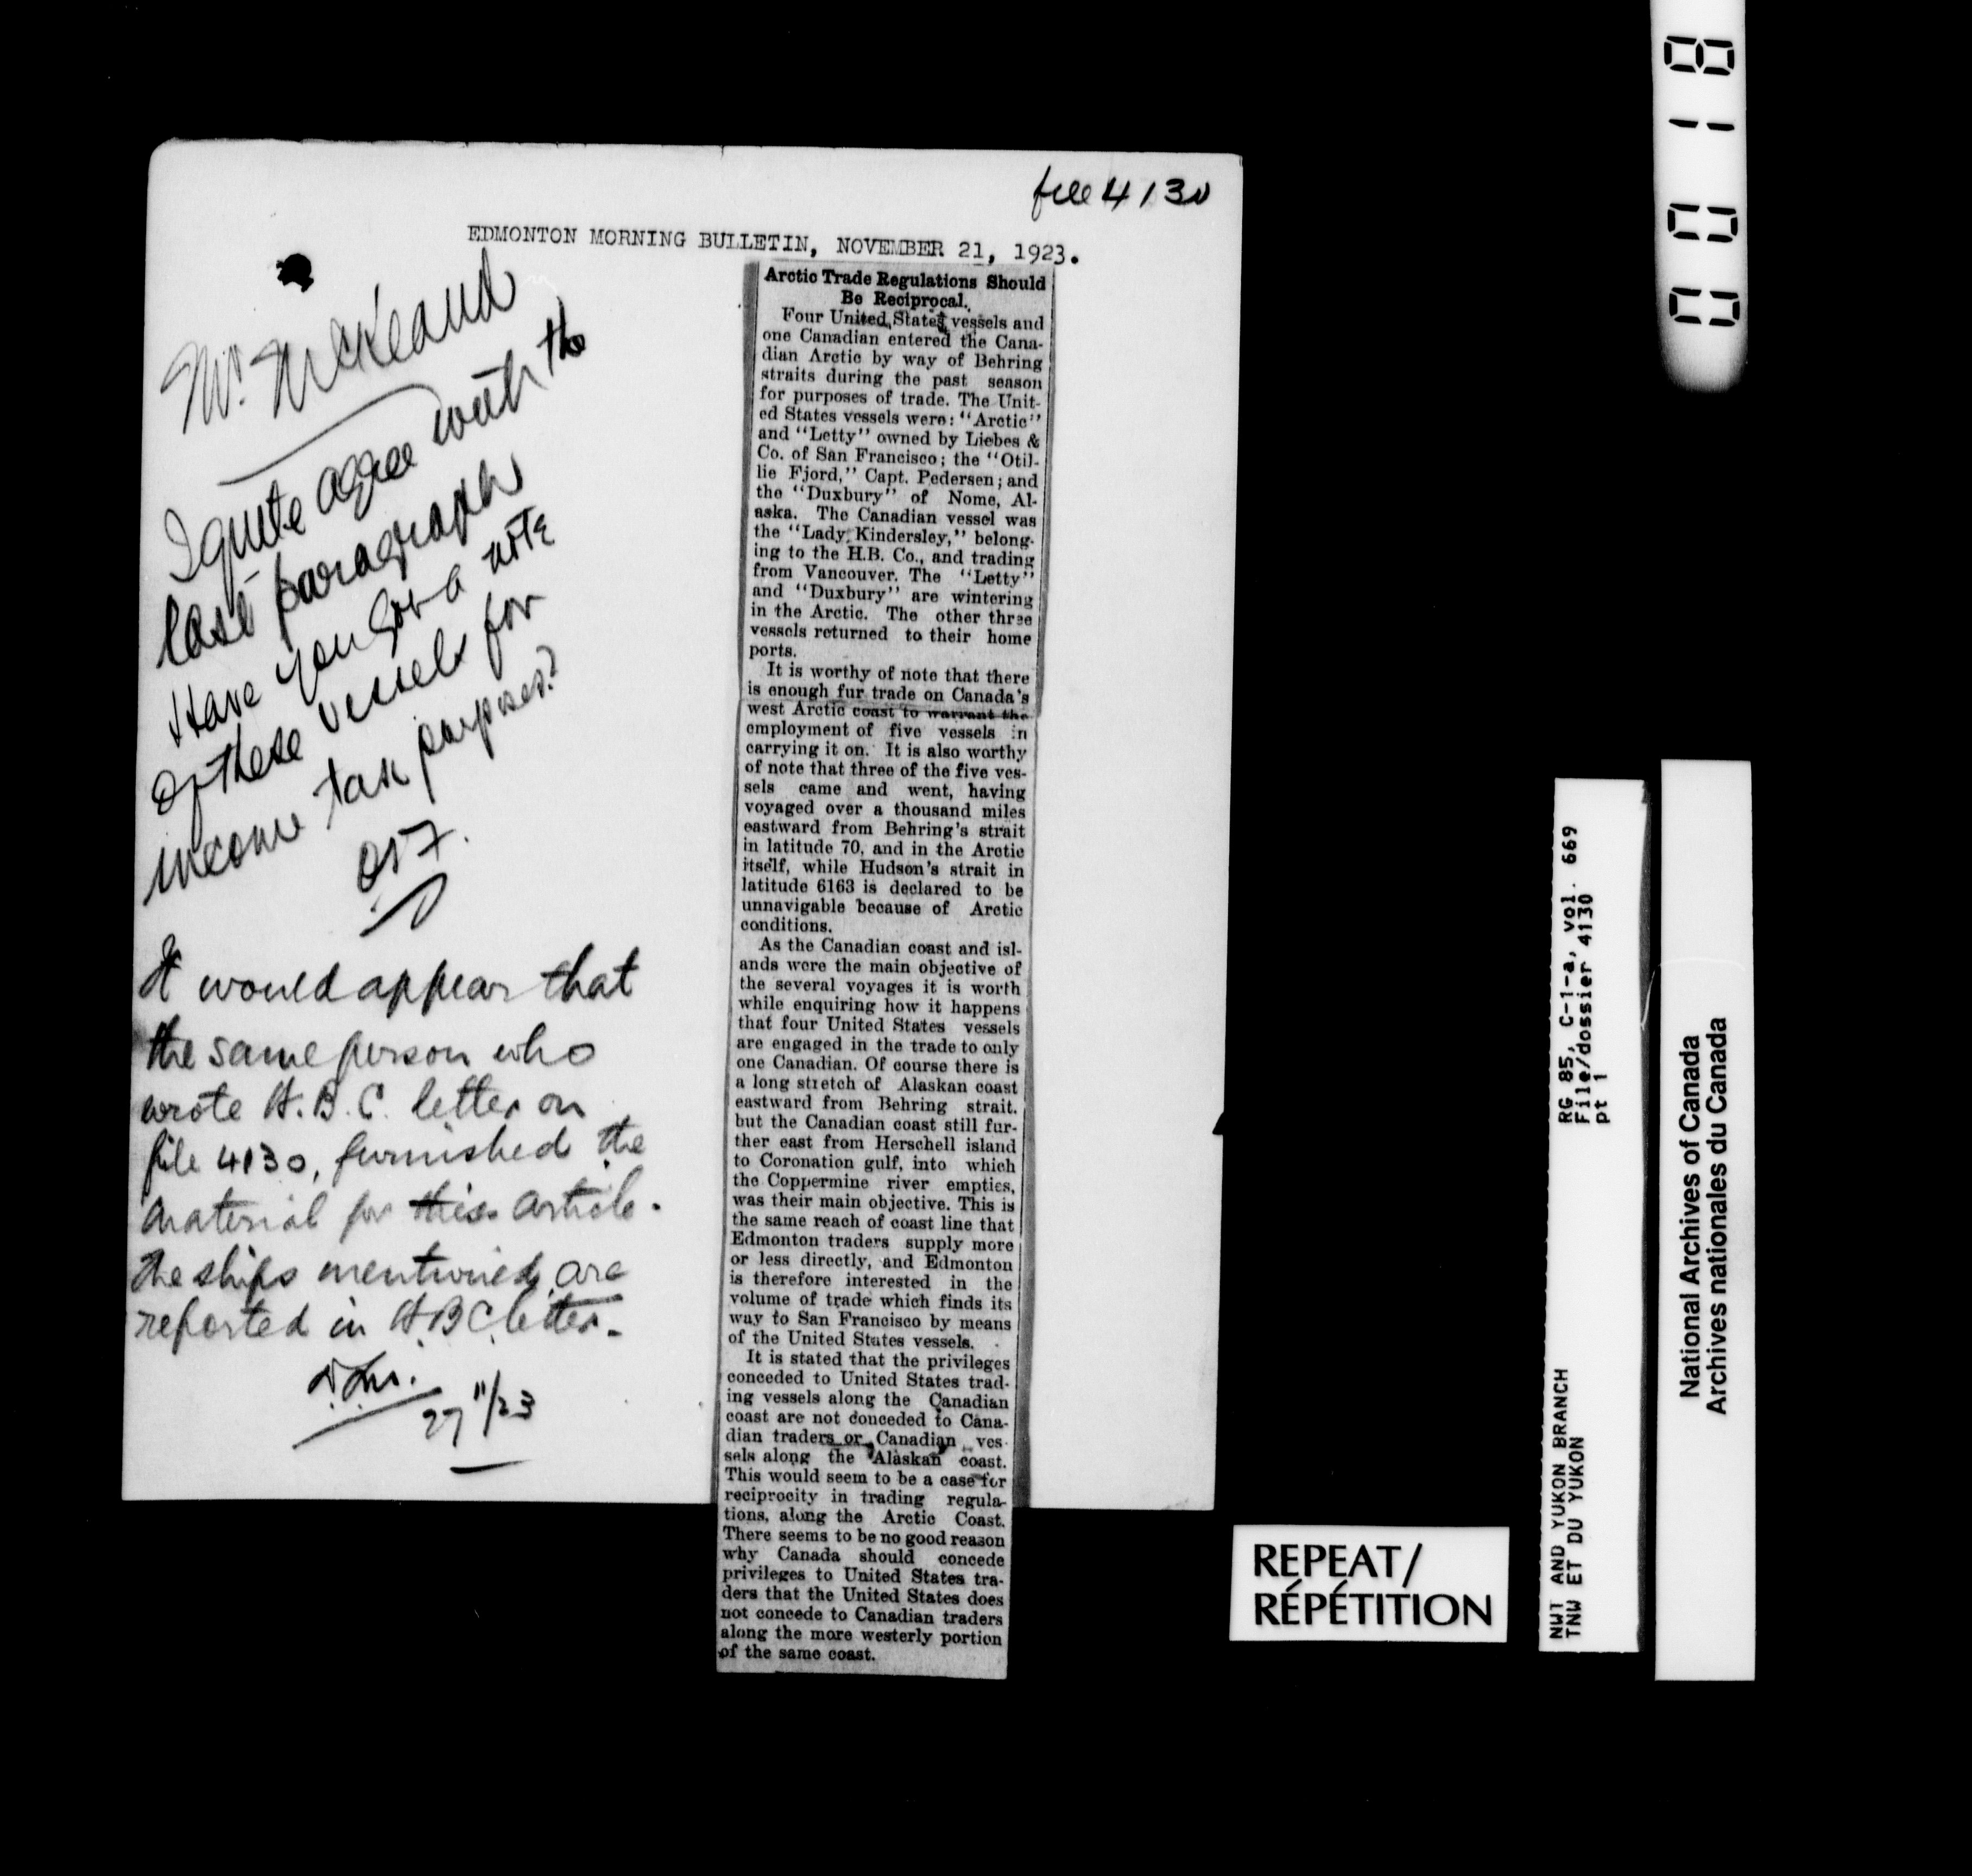 file 4130
EDMONTON MORNING BULLETIN, NOVEMBER 21, 1923.
Mr. McKeand
I quite agree with the
last paragraph
Have you got a note
of these vessels for
income tax purposes?
It would appear that
the same person who
wrote H.B.C. letter on
file 4130, furnished the
material for this article.
The ships mentioned are
reported in H.B.C. letter.
27 11/23
Arctic Trade Regulations Should
Be Reciprocal.
Four United States vessels and
one Canadian entered the Cana-
dian Arctic by way of Behring
straits during the past season
for purposes of trade. The Unit-
ed States vessels were: "Arctic"
and "Letty" owned by Liebes &
Co. of San Francisco; the "Otil-
lie Fjord," Capt. Pedersen; and
the "Duxbury" of Nome, Al-
aska. The Canadian vessel was
the "Lady Kindersley," belong-
ing to the H.B. Co., and trading
from Vancouver. The "Letty"
and "Duxbury" are wintering
in the Arctic. The other three
vessels returned to their home
ports.
It is worthy of note that there
is enough fur trade on Canada's
west Arctic coast to warrant the
employment of five vessels in
carrying it on. It is also worthy
of note that three of the five ves-
sels came and went, having
voyaged over a thousand miles
eastward from Behring's strait
in latitude 70, and in the Arctic
itself, while Hudson's strait in
latitude 6163 is declared to be
unnavigable because of Arctic
conditions.
As the Canadian coast and isl-
ands were the main objective of
the several voyages it is worth
while enquiring how it happens
that four United States vessels
are engaged in the trade to only
one Canadian. Of course there is
a long stretch of Alaskan coast
eastward from Behring strait,
but the Canadian coast still fur-
ther east from Herschell island
to Coronation gulf, into which
the Coppermine river empties,
was their main objective. This is
the same reach of coast line that
Edmonton traders supply more
or less directly, and Edmonton
is therefore interested in the
volume of trade which finds its
way to San Francisco by means
of the United States vessels.
It is stated that the privileges
conceded to United States trad-
ing vessels along the Canadian
coast are not conceded to Cana-
dian traders or Canadian ves-
sels along the Alaskan coast.
This would seem to be a case for
reciprocity in trading regula-
tions, along the Arctic Coast.
There seems to be no good reason
why Canada should concede
privileges to United States tra-
ders that the United States does
not concede to Canadian traders
along the more westerly portion
of the same coast.
REPEAT/
RÉPÉTITION
RG 85, C-1-a, vol. 669
File/dossier 4130
pt 1
NWT AND YUKON BRANCH
TNW ET DU YUKON
National Archives of Canada
Archives nationales du Canada
0018